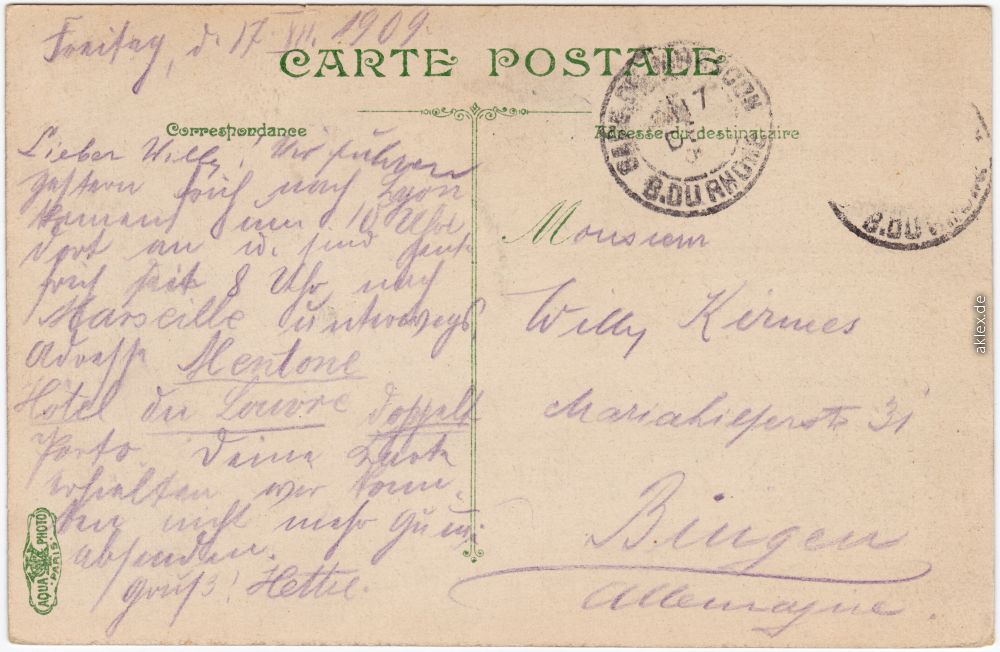 Freitag, d. 17. XII. 1909.
CARTE POSTALE
Correspondance
Adresse du destinataire
Lieber Willy! Wir fuhren
gestern früh nach Lyon
kamen um 10 Uhr
dort an u. sind heute
früh seit 8 Uhr nach
Marseille unterwegs
Adresse Mentone
Hotel du Louvre doppelt
Porto. Deine Karte
erhalten wir konn.
ten nicht mehr
absenden.
Gruß! Hettie.
Monsieur
Willy Kirmes
Mariahilferstr 31
Bingen
Allemagne.
B.DU RHONE
B.DU
AQUA PHOTO
PARIS
aklex.de